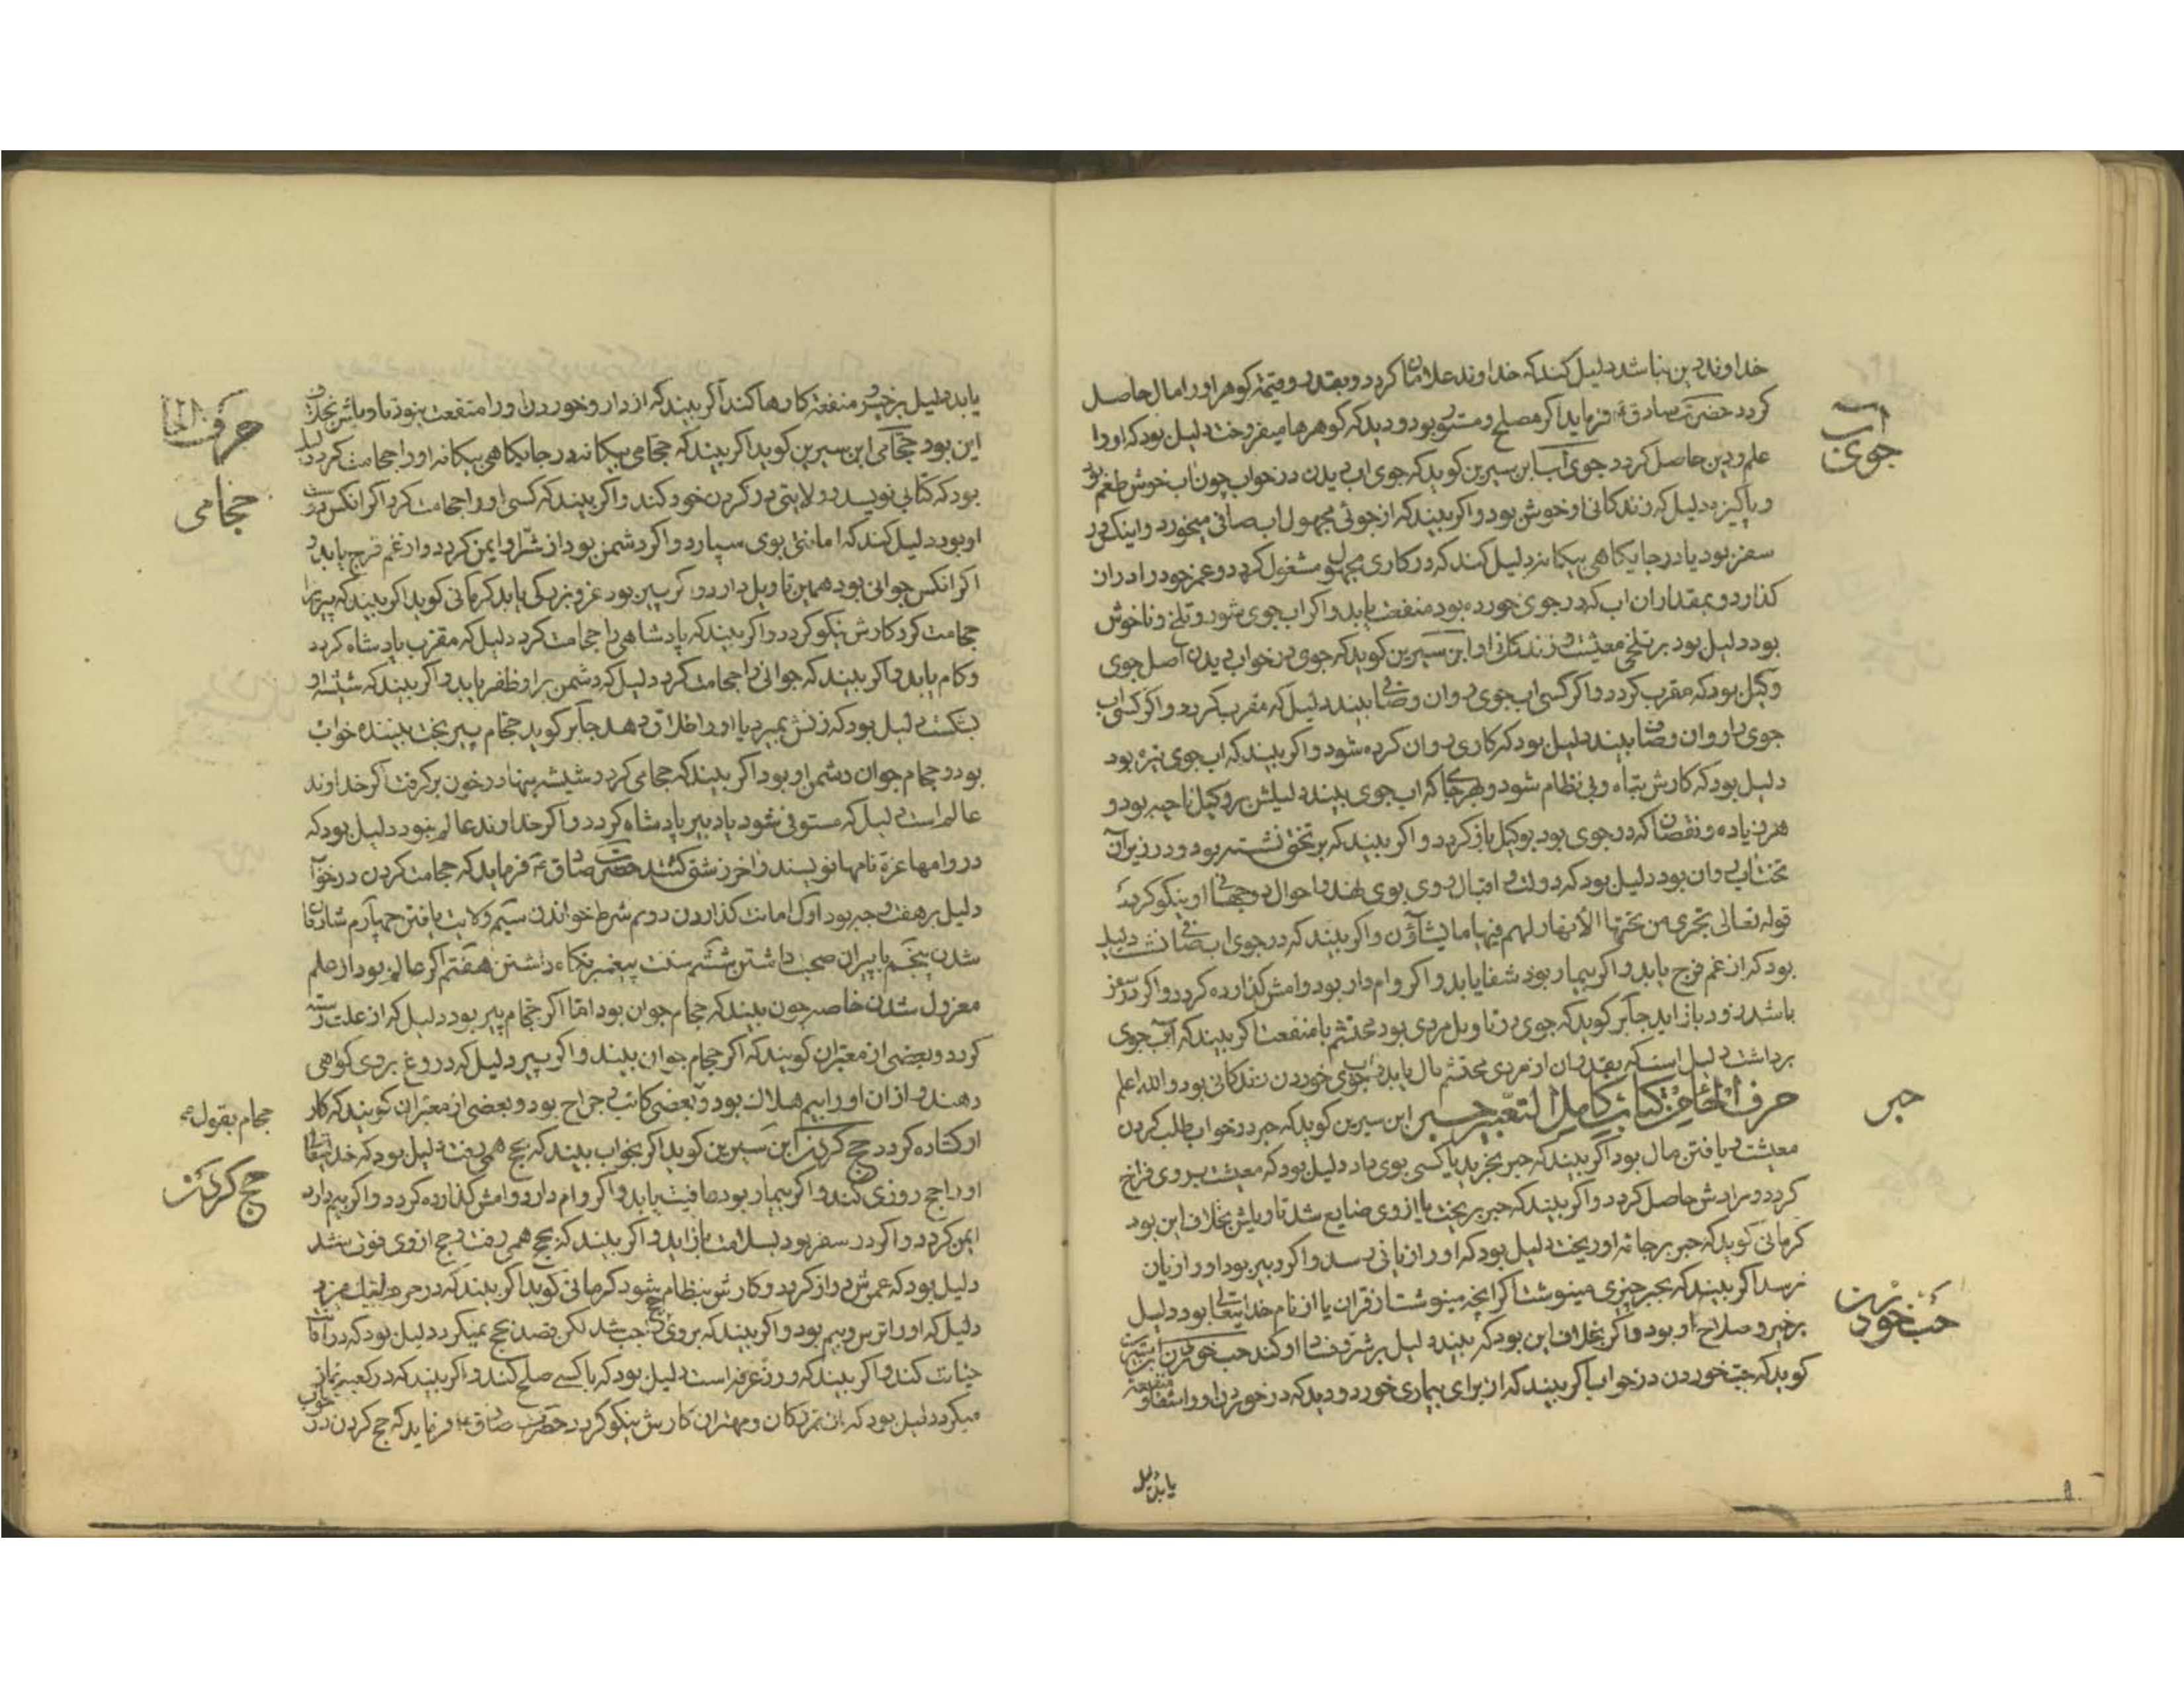 خداوند دین نباشد دلیل کند که خداوند علامات کردد و بقدر و قیمة کوهر اورا مال حاصل
کردد حضرت صادق ع فرماید اکر مصلح و مستور بود و دید که کوهرها میفروخت دلیل بود که اورا
علم و دین حاصل کردد جوی آب ابن سیرین کوید که جوی اب دیدن در خواب چون اب خوش طعم بود
و پاکیزه دلیل که زندکانی او خوش بود و اکر بیند که از جوئی مجهول اب صافی میخورد و اینکس در
سفر بود یا در جایکاهی بیکانه دلیل کند که در کاری مجهول مشغول کردد و عمر خود را دران
کذارد و بمقدار ان اب که در جوی خورده بود منفعت یابد و اکر اب جوی شور و تلخ و ناخوش
بود دلیل بود بر تلخی معیشت و زندکانی او ابن سیرین کوید که جوی در خواب دیدن اصل جوی
وکیل بود که مقرب کردد و اکر کسی اب جوی روان و صافی بیند دلیل که مقرب کردد و اکر کسی اب
جوی را روان و صافی بیند دلیل بود که کاری روان کرده شود و اکر بیند که اب جوی تیره بود
دلیل بود که کارش تباه و بی نظام شود و هر جا که اب جوی بیند دلیلش بر وکیل ناحیه بود و
هر زیاده و نقصان که در جوی بود بوکیل باز کردد و اکر بیند که بر تختی نشسته بود و در زیر آن
تخت اب روان بود دلیل بود که دولت و اقبال روی بوی نهد و احوال دو جهانی او نیکو کردد
قوله تعالی تجری من تحتها الأنهار لهم فیها ما یشاؤن و اکر بیند که در جوی اب صافی نشست دلیل
بود که از غم فرج یابد و اکر بیمار بود شفا یابد و اکر وام دار بود وامش کذارده کردد و اکر در سفر
باشد زود باز اید جابر کوید که جوی در تاویل مردی بود محتشم با منفعت اکر بیند که آب جوی
برداشت دلیل است که بقدر ان از مردی محتشم مال یابد و اب جوی خوردن زندکانی بود والله اعلم
حرف الحاء من کتاب کامل التعبیر حبر ابن سیرین کوید که حبر در خواب طلب کردن
معیشت و یافتن مال بود اکر بیند که حبر بخرید یا کسی بوی داد دلیل بود که معیشت بر وی فراخ
کردد و مرادش حاصل کردد و اکر بیند که حبر بریخت یا از وی ضایع شد تاویلش بخلاف این بود
کرمانی کوید که حبر بر جامه او ریخت دلیل بود که اورا زیانی رسد و اکر دبیر بود اورا زیان
نرسد اکر بیند که بحبر چیزی مینوشت اکر انچه مینوشت از قران یا از نام خدایتعالی بود دلیل
بر خیر و صلاح او بود و اکر بخلاف این بود که بیند دلیل بر شر و فساد او کند حب خوردن ابن سیرین
کوید که حب خوردن در خواب اکر بیند که از برای بیماری خورد و دید که در خوردن او را شفا و منفعة
یابد دلیل
آب
جوی
حبر
حب خوردن
یابد دلیل بر خیر و منفعة کارها کند اکر بیند که از دارو خوردن اورا منفعت نبود تاویلش بخلاف
این بود حجامی ابن سیرین کوید اکر بیند که حجامی بیکانه در جایکاهی بیکانه اورا حجامت کرد دلیل
بود که کتابی نویسد و ولایتی در کردن خود کند و اکر بیند که کسی او را حجامت کرد اکر انکس دوست
او بود دلیل کند که امانتی بوی سپارد و اکر دشمن بود از شر او ایمن کردد و از غم فرج یابد و
اکر انکس جوانی بود همین تاویل دارد و اکر پیر بود عز و بزرکی یابد کرمانی کوید اکر بیند که پیریرا
حجامت کرد کارش نیکو کردد و اکر بیند که پادشاهی را حجامت کرد دلیل که مقرب پادشاه کردد
و کام یابد و اکر بیند که جوانی را حجامت کرد دلیل که دشمن بر او ظفر یابد و اکر بیند که شیشه او
بشکست دلیل بود که زنش بمیرد یا اورا طلاق دهد جابر کوید حجام پیر بخت بیننده خواب
بود و حجام جوان دشمن او بود اکر بیند که حجامی کرد و شیشه بنهاد و خون برکرفت اکر خداوند
عالم است دلیل که مستوفی شود یا دبیر پادشاه کردد و اکر خداوند عالم نبود دلیل بود که
در وامها عزة نامها نویسند و اخر زشتی کشد حضرت صادق ع فرماید که حجامت کردن در خواب
دلیل بر هفت وجه بود اول امانت کذاردن دوم شرط خواندن سیم ولایت یافتن چهارم شادی
شدن پنجم با پیران صحبت داشتن ششم سنت پیغمبر نکاه داشتن هفتم اکر عالم بود از علم
معزول شدن خاصه چون بیند که حجام جوان بود اما اکر حجام پیر بود دلیل که از علت رسته
کردد و بعضی از معبران کویند که اکر حجام جوان بیند و اکر پیر دلیل که دروغ بر وی کواهی
دهند و از ان اورا بیم هلاک بود و بعضی کاتب و جراح بود و بعضی از معبران کویند که کار
او کشاده کردد حج کردن ابن سیرین کوید اکر بخواب بیند که بحج همی رفت دلیل بود که خدایتعالی
اورا حج روزی کند و اکر بیمار بود عافیت یابد و اکر وام دارد وامش کذارده کردد و اکر بیم دارد
ایمن کردد و اکر در سفر بود بسلامت باز اید و اکر بیند که بحج همی رفت و حج از وی فوت شد
دلیل بود که عمرش دراز کردد و کارش بنظام شود کرمانی کوید اکر بیند که در حرم لبیک میزد
دلیل که اورا ترس و بیم بود و اکر بیند که بر وی حج واجب شد لکن قصد حج نمیکرد دلیل بود که در امانت
خیانت کند و اکر بیند که روز عرفه است دلیل بود که با کسی صلح کند و اکر بیند که در کعبه نماز
میکرد دلیل بود که از بزرکان و مهتران کارش نیکو کردد حضرت صادق ع فرماید که حج کردن در خواب
حرف الحا
حجامی
حجام بقول
حج کردن